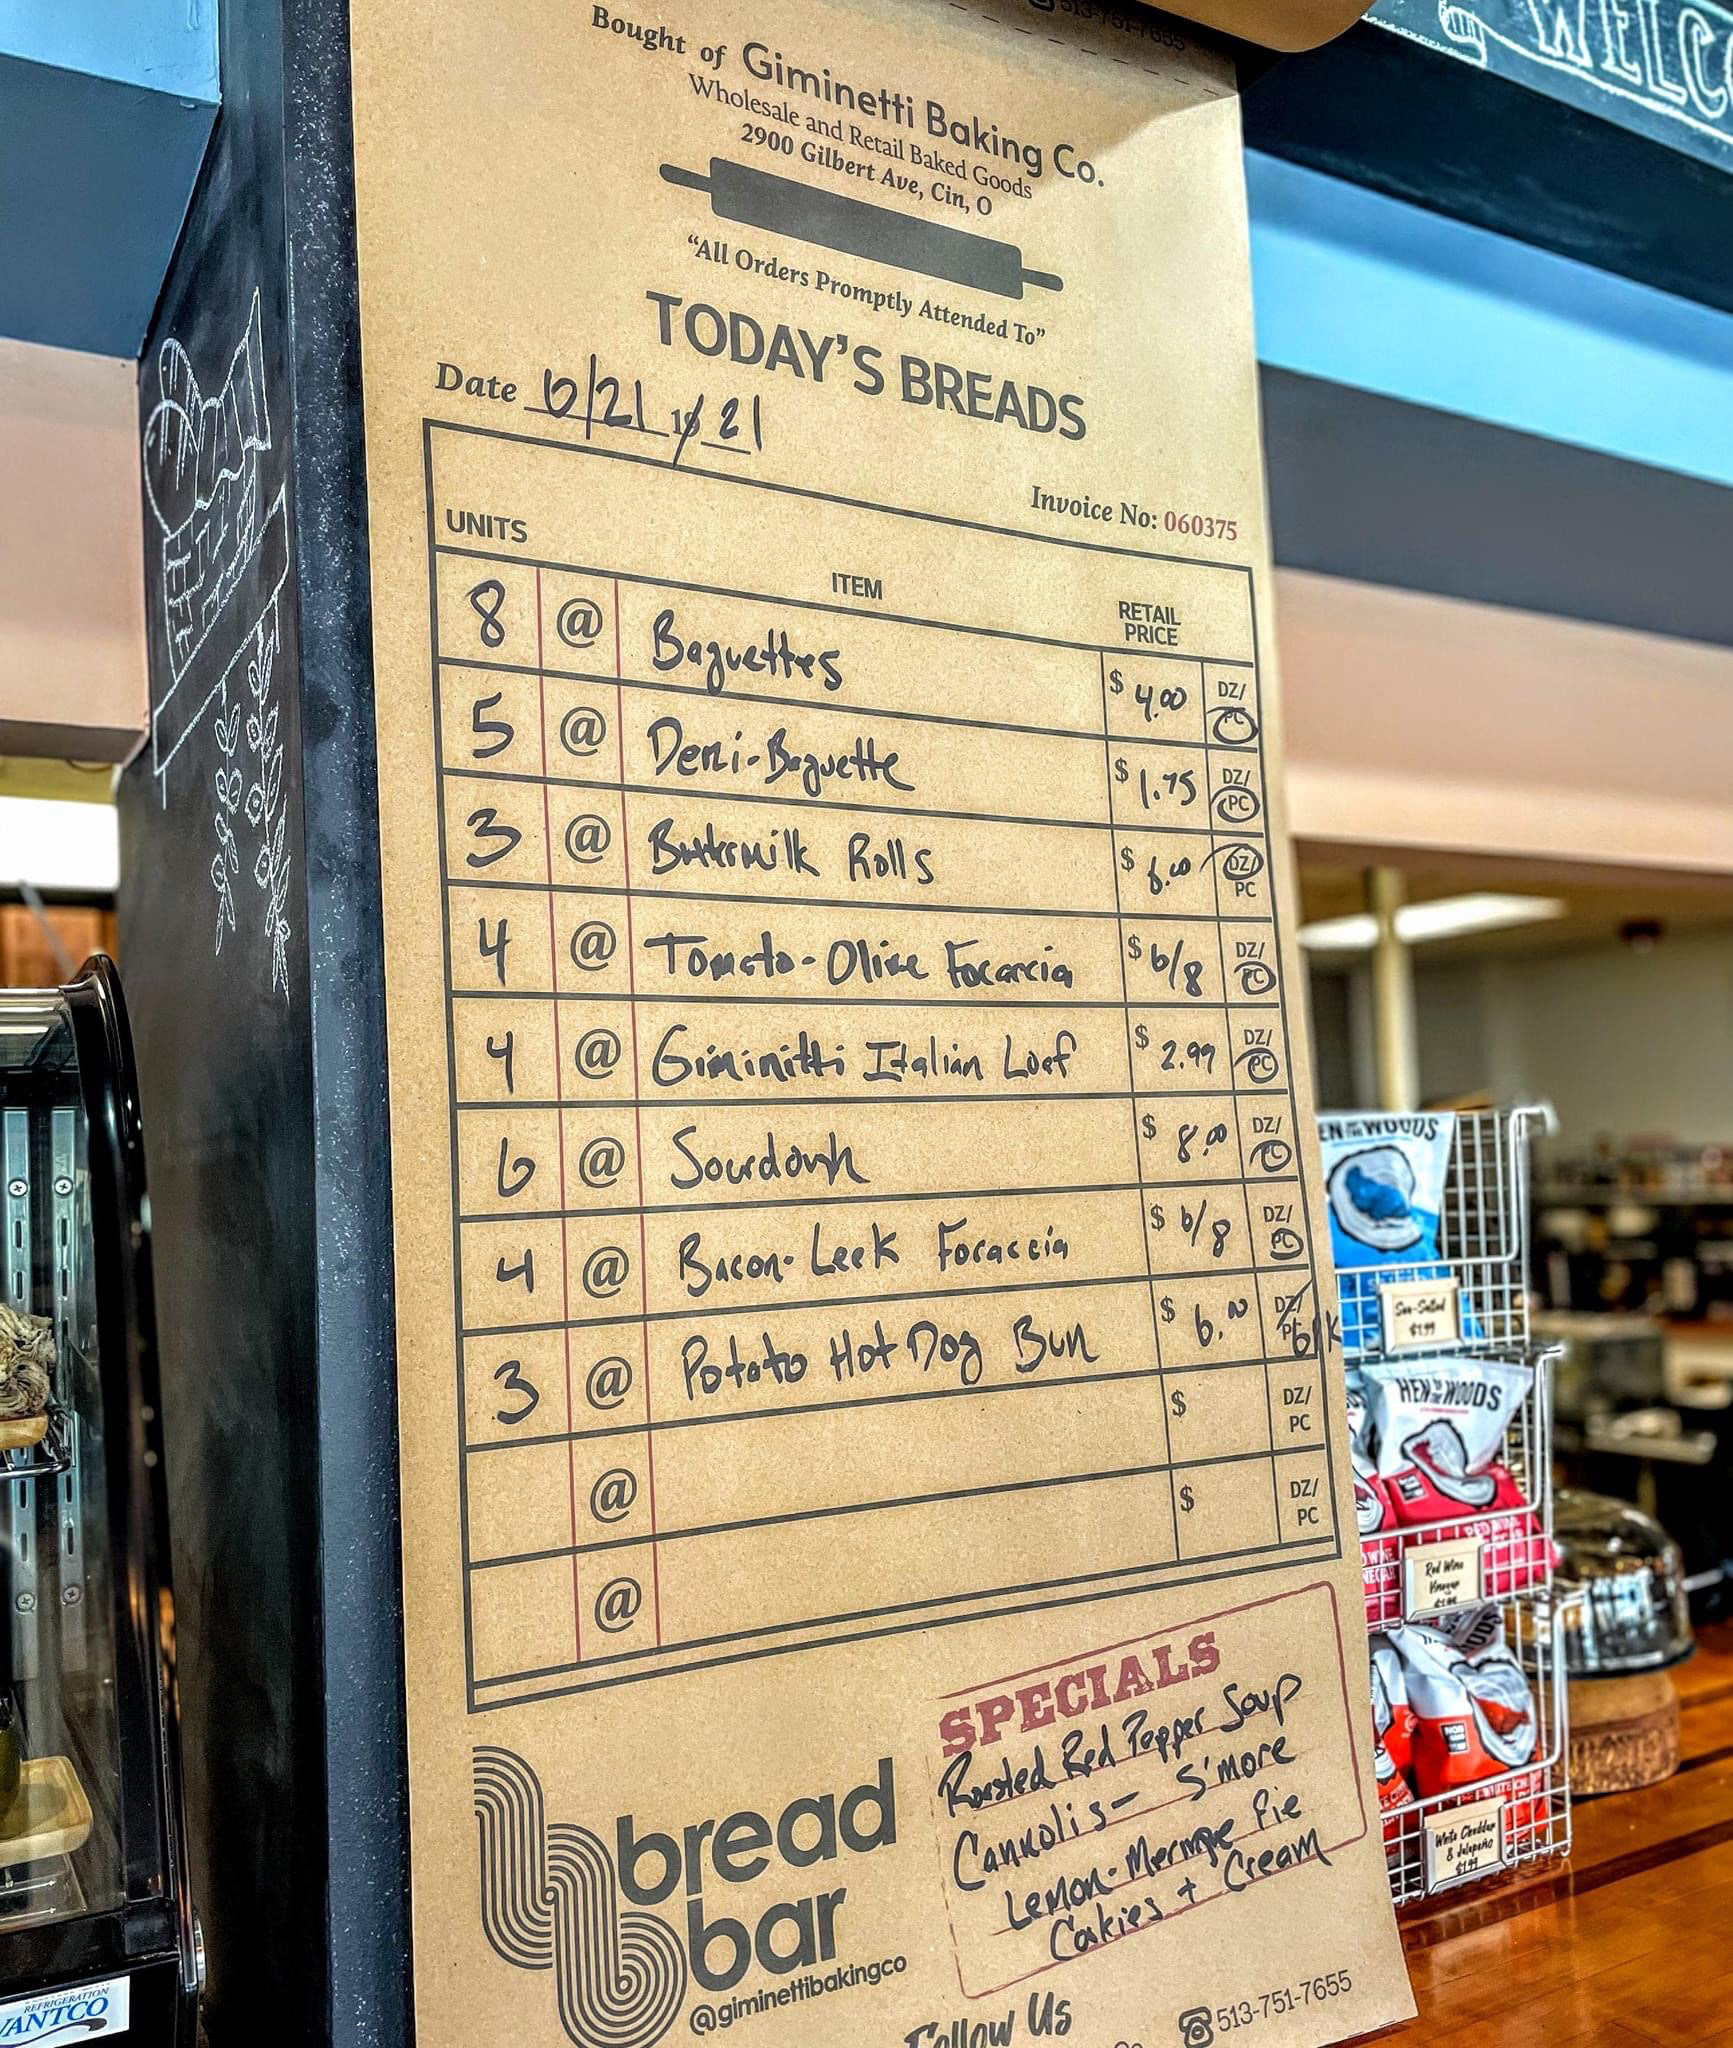 513-751-7655
WELCO
Bought of Giminetti Baking Co.
Wholesale and Retail Baked Goods
2900 Gilbert Ave, Cin, O
"All Orders Promptly Attended To"
TODAY'S BREADS
Date 6/21 19 21
Invoice No: 060375
UNITS ITEM RETAIL PRICE
8 @ Baguettes $ 4.00 DZ/PC
5 @ Demi-Baguette $ 1.75 DZ/PC
3 @ Buttermilk Rolls $ 6.00 DZ/PC
4 @ Tomato-Olive Focaccia $ 6/8 DZ/PC
4 @ Giminitti Italian Loaf $ 2.99 DZ/PC
6 @ Sourdough $ 8.00 DZ/PC
4 @ Bacon-Leek Focaccia $ 6/8 DZ/PC
3 @ Potato Hot Dog Bun $ 6.00 DZ/PC 6pk
@ $ DZ/PC
@ $ DZ/PC
@
SPECIALS
Roasted Red Pepper Soup
Cannolis - S'more
Lemon-Meringue Pie
Cookies + Cream
bread
bar
@giminettibakingco
Follow Us
513-751-7655
EN OF THE WOODS
Sea-Salted
$1.99
HEN OF THE WOODS
RED WINE
Red Wine
Vinegar
$1.99
White Cheddar
& Jalapeño
$1.99
REFRIGERATION
VANTCO